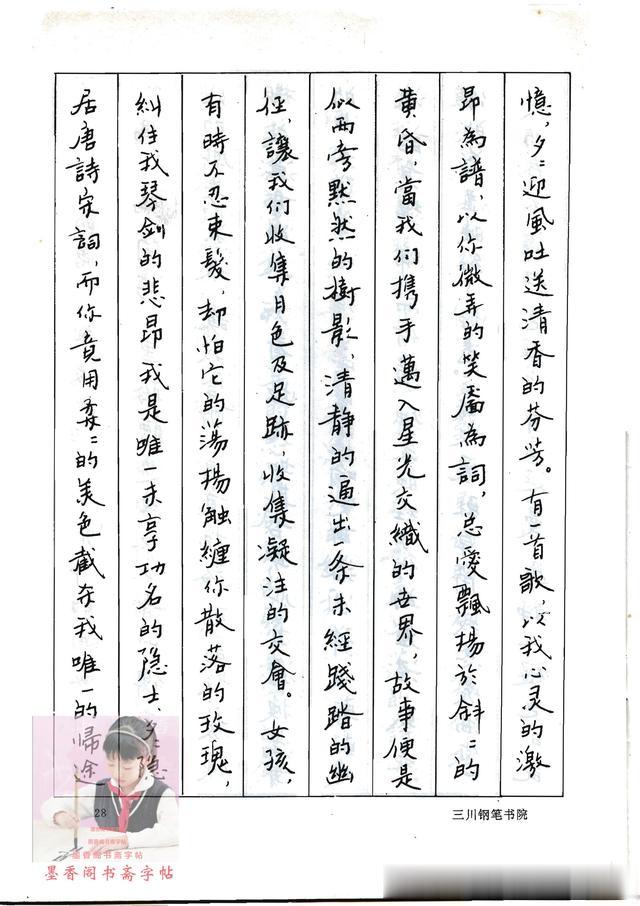 憶，夕〻迎風吐送清香的芬芳。有一首歌，以我心灵的激
昂為譜，以你微弄的笑靨為詞，总愛飄揚於斜〻的
黄昏，當我们携手邁入星光交織的世界，故事便是
似两旁默然的樹影，清静的逼出一条未經踐踏的幽
径，讓我们收集月色及足跡，收集凝注的交會。女孩，
有時不忍束髮，却怕它的蕩揚触纏你散落的玫瑰，
糾住我琴剑的悲昂 我是唯一未享功名的隐士、夕〻隐
居唐詩宋詞，而你竟用柔〻的美色截夺我唯一的歸途
28
三川钢笔书院
墨香阁书斋字帖
墨香阁书斋字帖